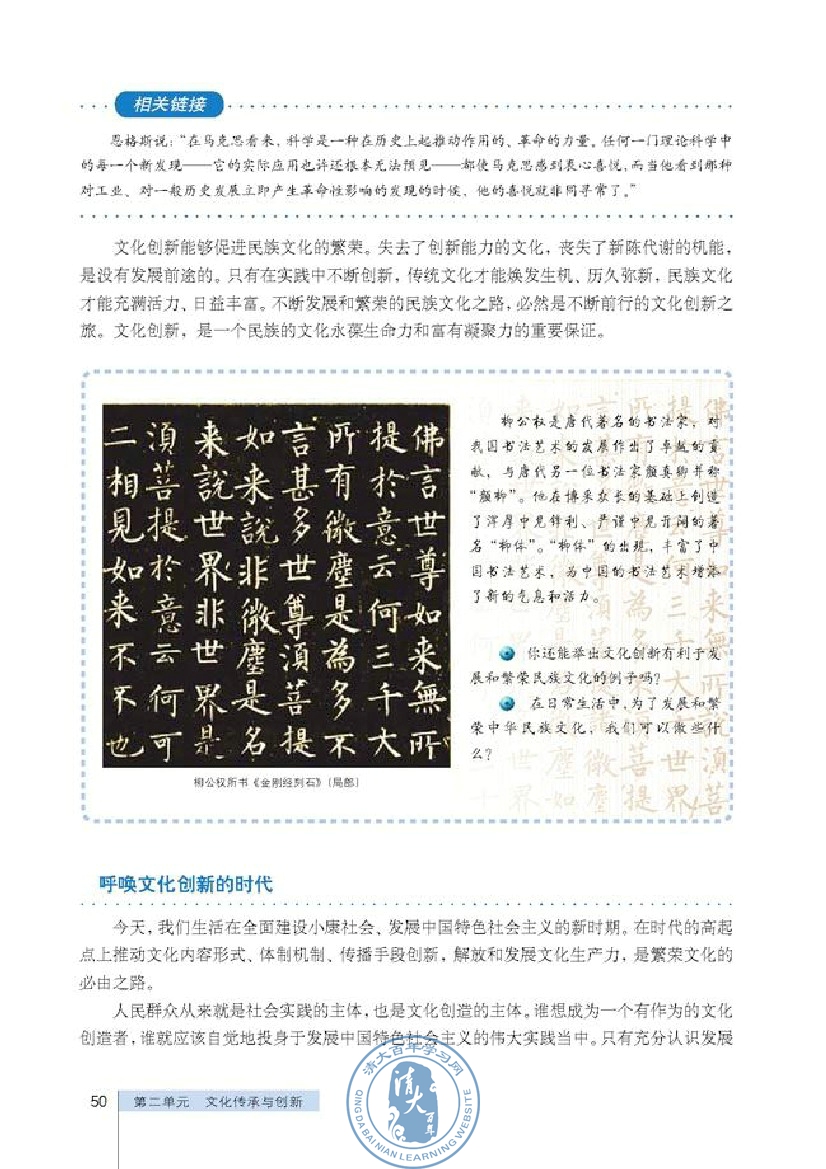 相关链接
恩格斯说：“在马克思看来，科学是一种在历史上起推动作用的、革命的力量。任何一门理论科学中
的每一个新发现——它的实际应用也许还根本无法预见——都使马克思感到衷心喜悦，而当他看到那种
对工业、对一般历史发展立即产生革命性影响的发现的时候，他的喜悦就非同寻常了。”
文化创新能够促进民族文化的繁荣。失去了创新能力的文化，丧失了新陈代谢的机能，
是没有发展前途的。只有在实践中不断创新，传统文化才能焕发生机、历久弥新，民族文化
才能充满活力、日益丰富。不断发展和繁荣的民族文化之路，必然是不断前行的文化创新之
旅。文化创新，是一个民族的文化永葆生命力和富有凝聚力的重要保证。
佛言世尊如来無所
提於意云何三千大
所有微塵是為多不
言甚多世尊須菩提
如来說非微塵是名
来說世界非世界是
須菩提於意云何可
二相見如来不不也
柳公权所书《金刚经刻石》（局部）
柳公权是唐代著名的书法家，对
我国书法艺术的发展作出了卓越的贡
献，与唐代另一位书法家颜真卿并称
“颜柳”。他在博采众长的基础上创造
了浑厚中见锋利、严谨中见开阔的著
名“柳体”。“柳体”的出现，丰富了中
国书法艺术，为中国的书法艺术增添
了新的气息和活力。
你还能举出文化创新有利于发
展和繁荣民族文化的例子吗？
在日常生活中，为了发展和繁
荣中华民族文化，我们可以做些什
么？
呼唤文化创新的时代
今天，我们生活在全面建设小康社会、发展中国特色社会主义的新时期。在时代的高起
点上推动文化内容形式、体制机制、传播手段创新，解放和发展文化生产力，是繁荣文化的
必由之路。
人民群众从来就是社会实践的主体，也是文化创造的主体。谁想成为一个有作为的文化
创造者，谁就应该自觉地投身于发展中国特色社会主义的伟大实践当中。只有充分认识发展
50 第二单元 文化传承与创新
清大百年学习网
清大百年
QINGDABAINIAN LEARNING WEBSITE